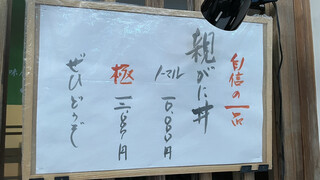 自信の一品
親がに丼
ノーマル 一〇.〇〇〇円
極
ぜひどうぞ